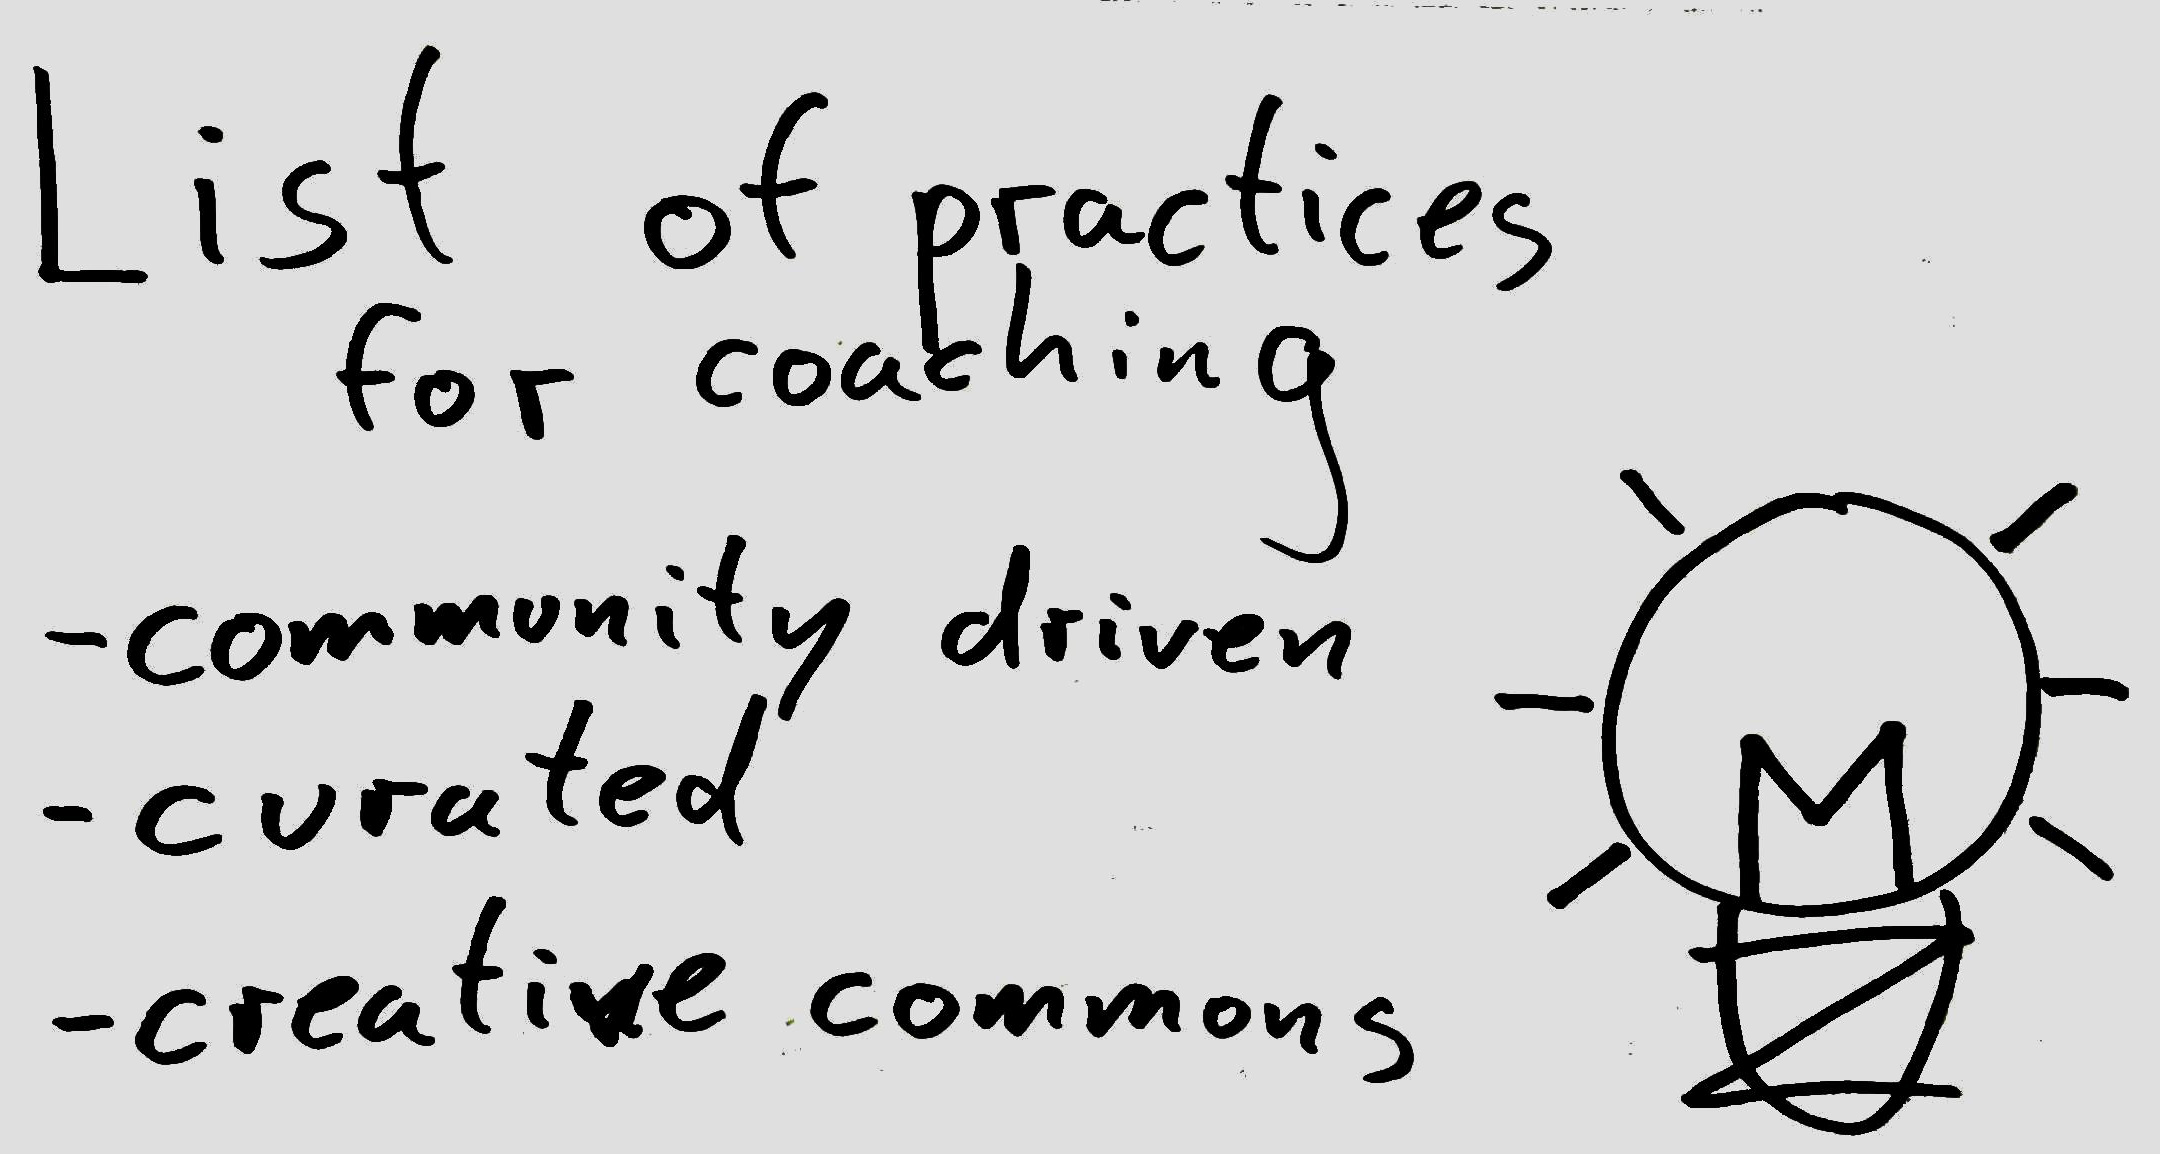 List of practices
for coaching
-community driven
-curated
-creative commons